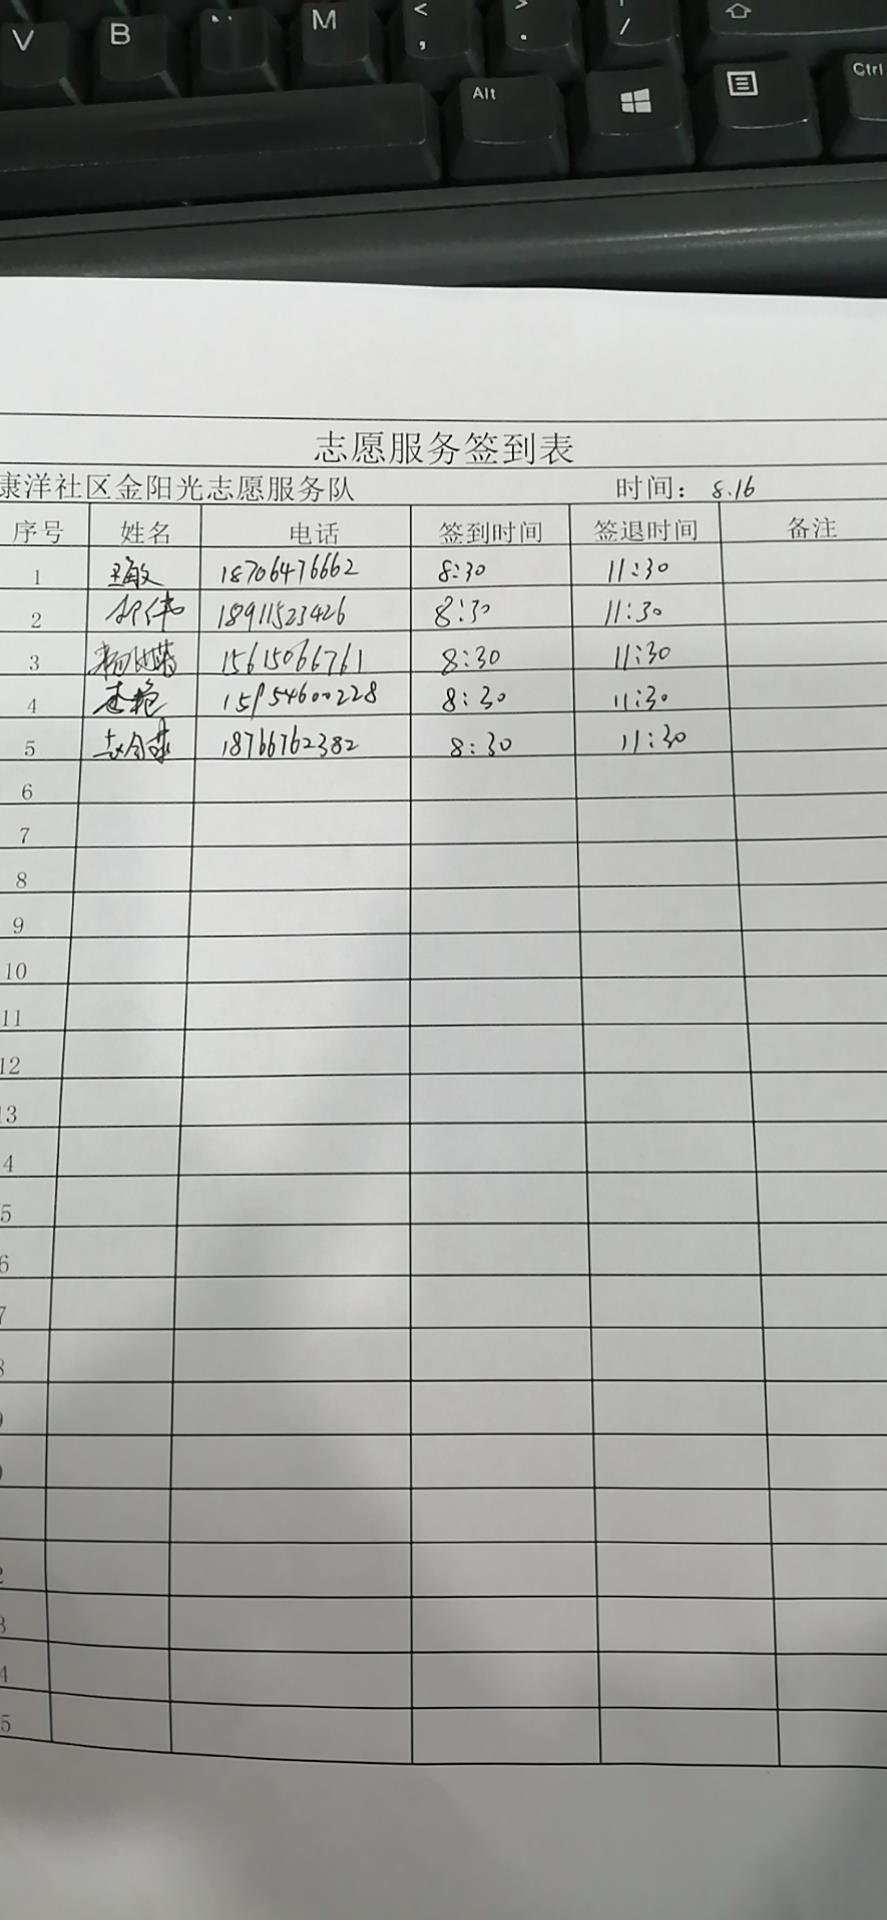 V B M < , > . /
Alt Ctrl
志愿服务签到表
康洋社区金阳光志愿服务队 时间: 8.16
序号 姓名 电话 签到时间 签退时间 备注
1 王敏 18706476662 8:30 11:30
2 18911523426 8:30 11:30
3 15615066761 8:30 11:30
4 8:30 11:30
5 18766762382 8:30 11:30
6
7
8
9
10
11
12
13
4
5
6
7
8
9
2
3
4
5